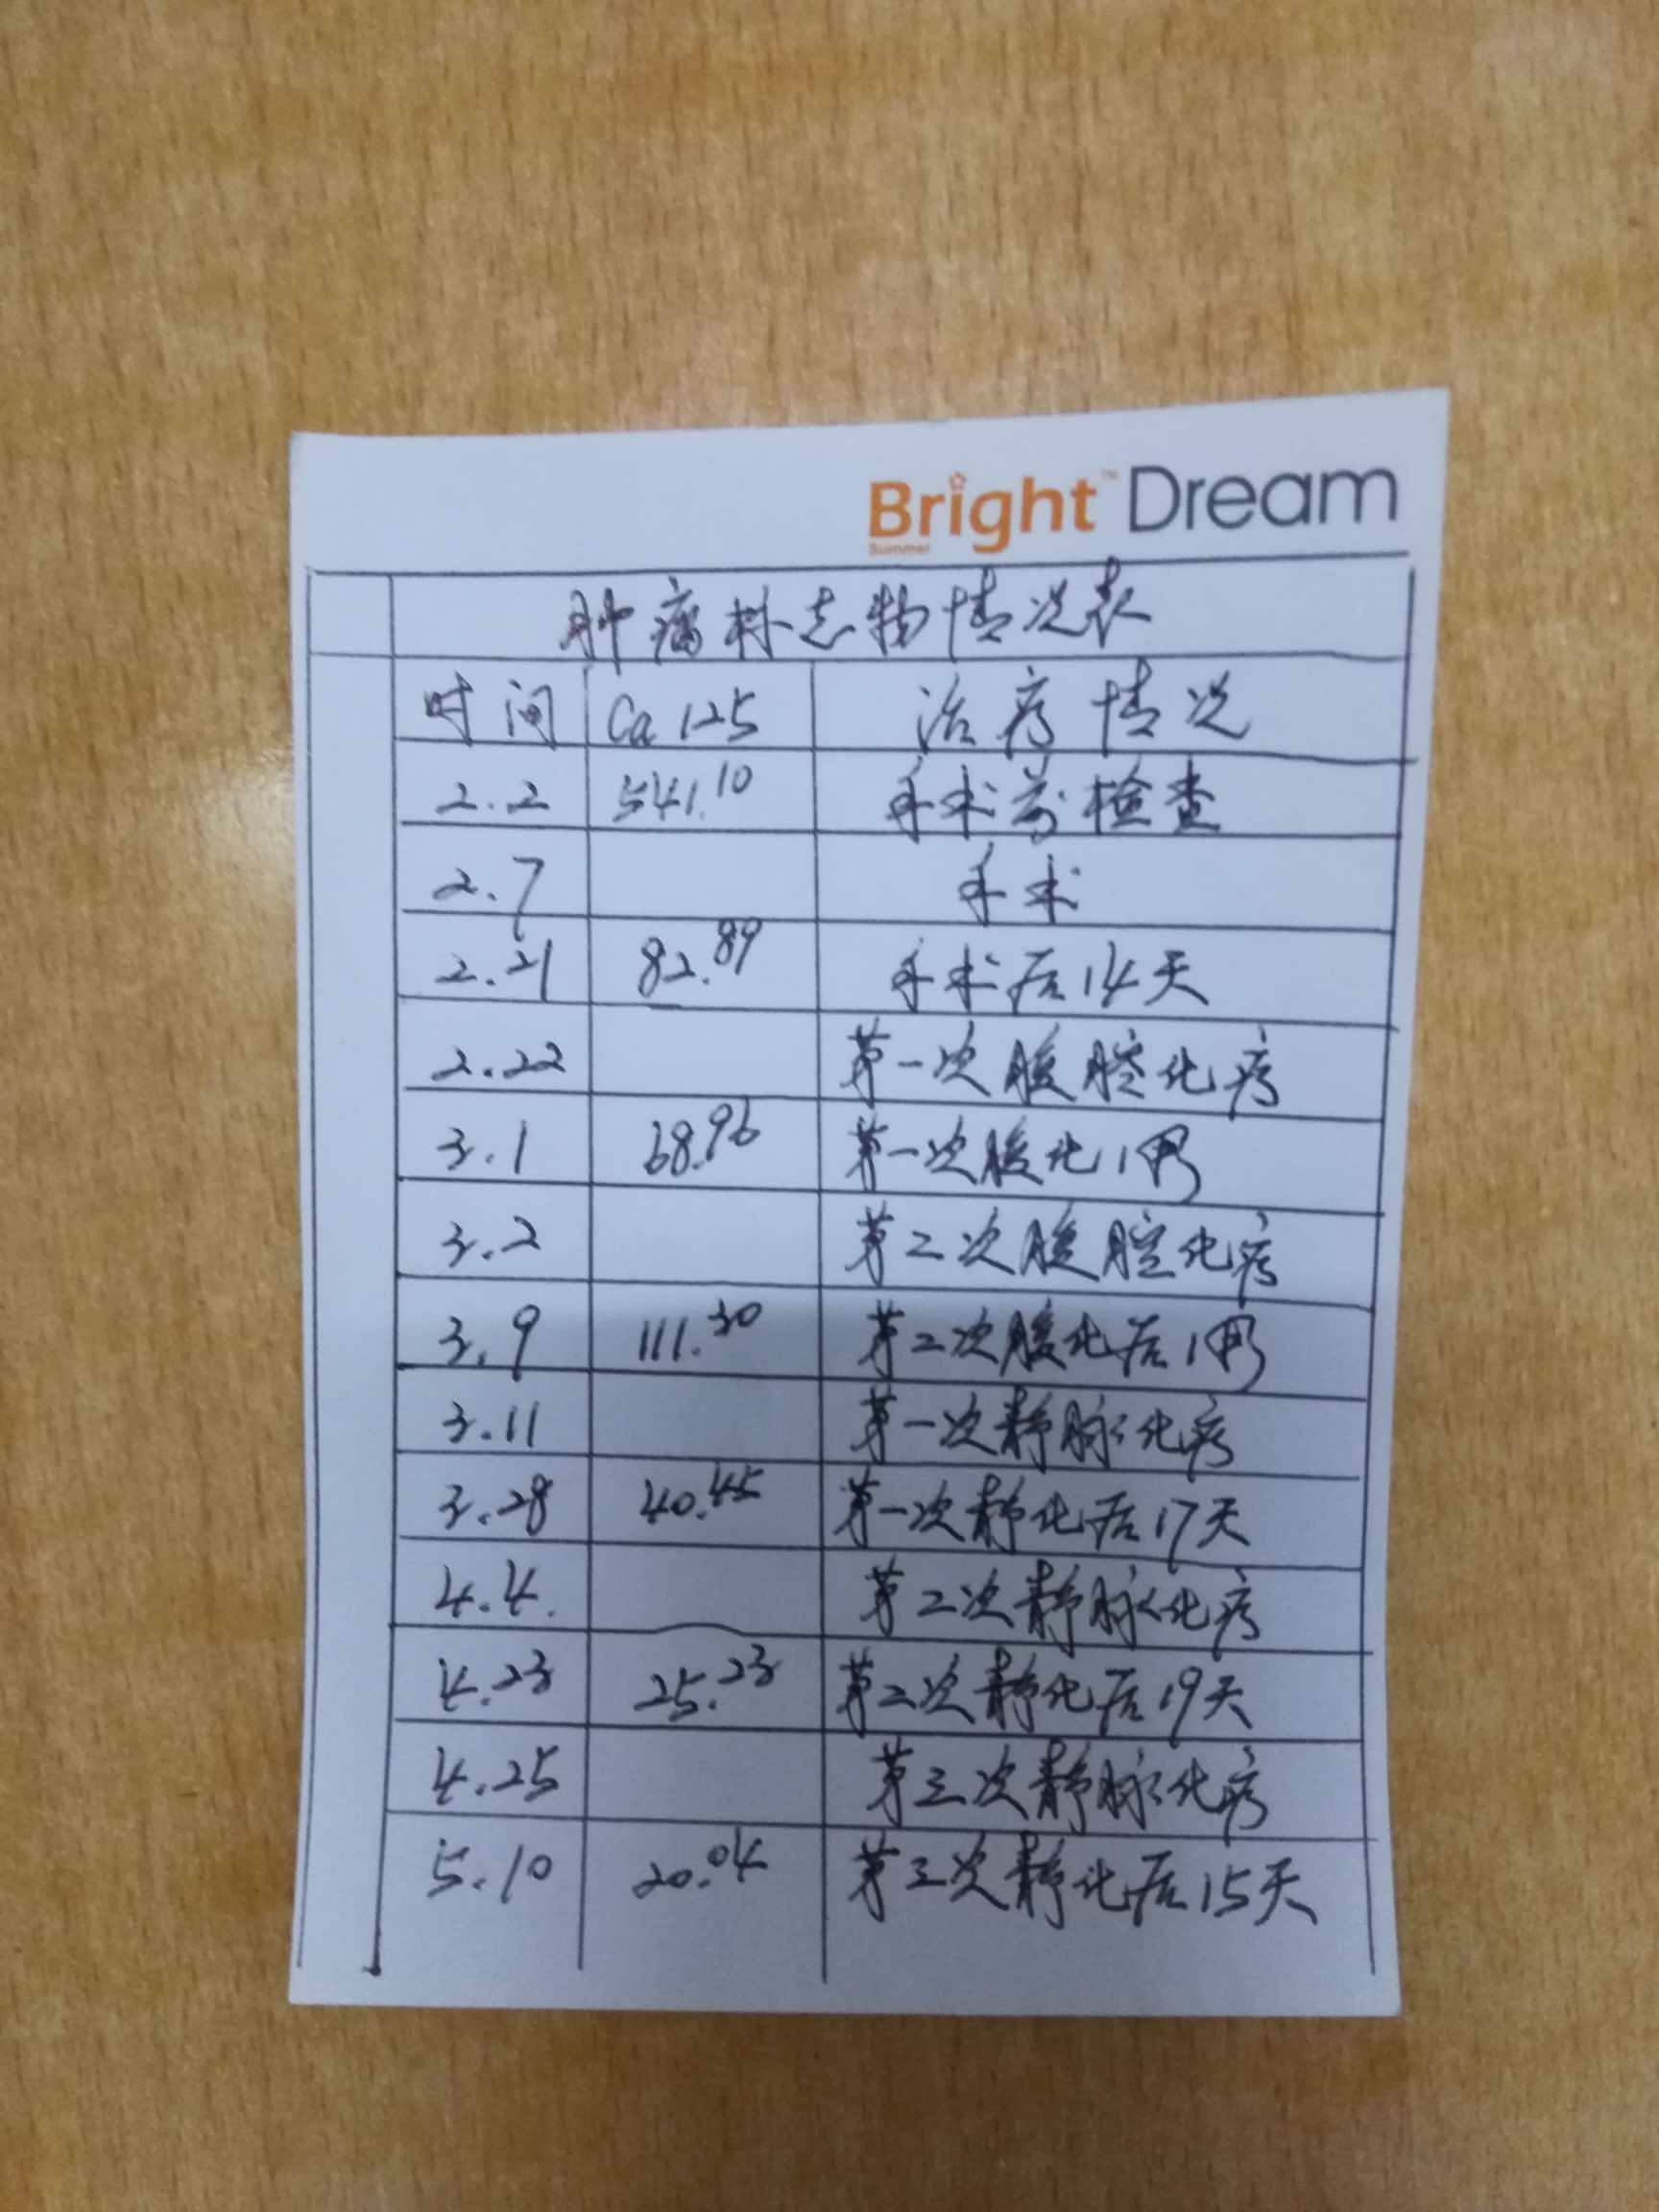 Bright™ Dream
Summer
肿瘤标志物情况表
时间 Ca125 治疗情况
2.2 541.10 手术前检查
2.7 手术
2.21 82.89 手术后14天
2.22 第一次腹腔化疗
3.1 68.96 第一次腹化1周
3.2 第二次腹腔化疗
3.9 111.30 第二次腹化后1周
3.11 第一次静脉化疗
3.28 40.45 第一次静化后17天
4.4. 第二次静脉化疗
4.23 25.23 第二次静化后19天
4.25 第三次静脉化疗
5.10 20.04 第三次静化后15天